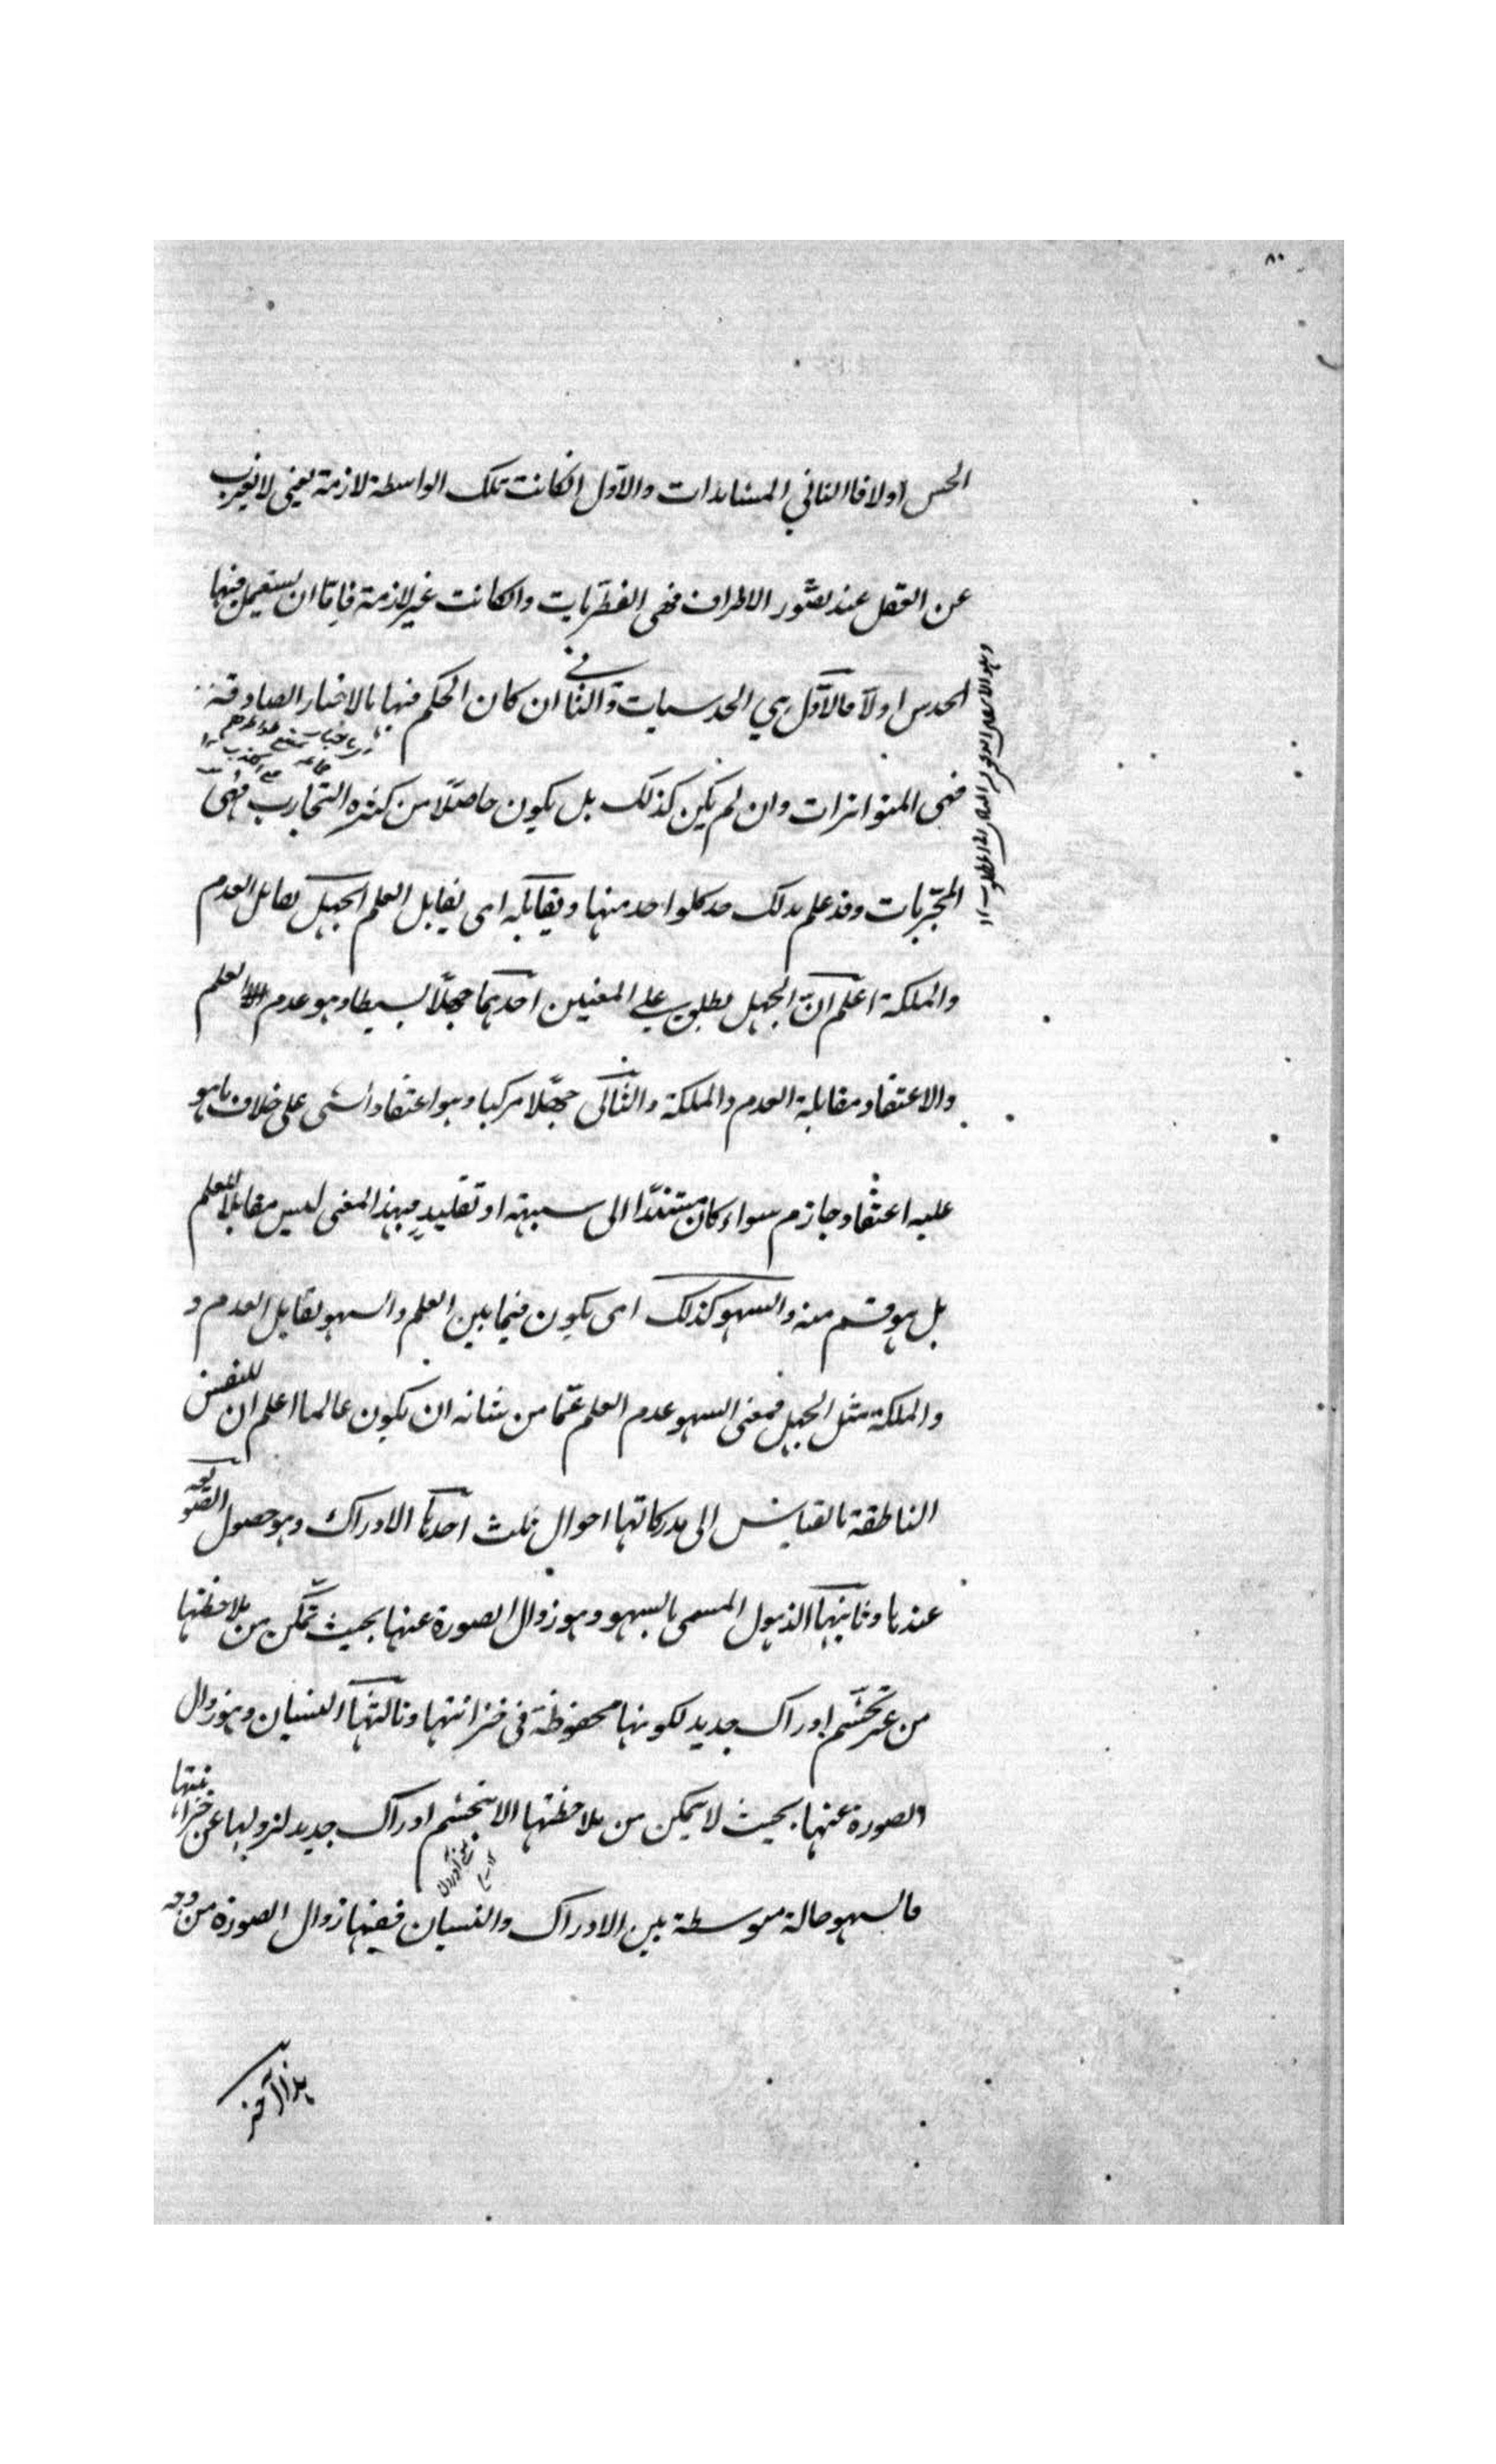 ٨٠
الحس اولا فالثاني المشاهدات والاول انكانت تلك الواسطة لازمة يعني لا يغرب
عن العقل عند تصور الاطراف فهى الفطريات وانكانت غير لازمة فامّا ان يستعمل فيها
الحدس اولا فالاوّل هي الحدسيات والثانى ان كان الحكم فيها بالاخبار الصادقة
فهى المتواترات وان لم يكن كذلك بل يكون حاصلاً من كثرة التجارب فهى
المجربات وقد علم بذلك حد كلواحد منها ويقابله اى يقابل العلم الجهل تقابل العدم
والملكة اعلم انّ الجهل يطلق على المعنيين احدهما جهلاً بسيطا وهو عدم العلم
والاعتقاد مقابلة العدم والملكة والثانى جهلا مركبا وهو اعتقاد الشى على خلاف ما هو
عليه اعتقاد جازم سواء كان مستندًا الى شبهة او تقليدٍ فبهذا المعنى ليس مقابلا للعلم
بل هو قسم منه والسهو كذلك اى يكون فيما بين العلم والسهو تقابل العدم و
والملكة مثل الجهل فمعنى السهو عدم العلم عمّا من شانه ان يكون عالما اعلم ان للنفس
الناطقة بالقياس الى مدركاتها احوال ثلث احدها الادراك وهو حصول الصورة
عندها وثانيها الذهول المسمى بالسهو وهو زوال الصورة عنها بحيث تمكن من ملاحظتها
من غير تجشم ادراك جديد لكونها محفوظة فى خزانتها وثالثها النسيان وهو زوال
الصورة عنها بحيث لا يتمكن من ملاحظتها الا بتجشم ادراك جديد لزولها عن خزانتها
فالسهو حالة متوسطة بين الادراك والنسيان ففيها زوال الصورة من وجه